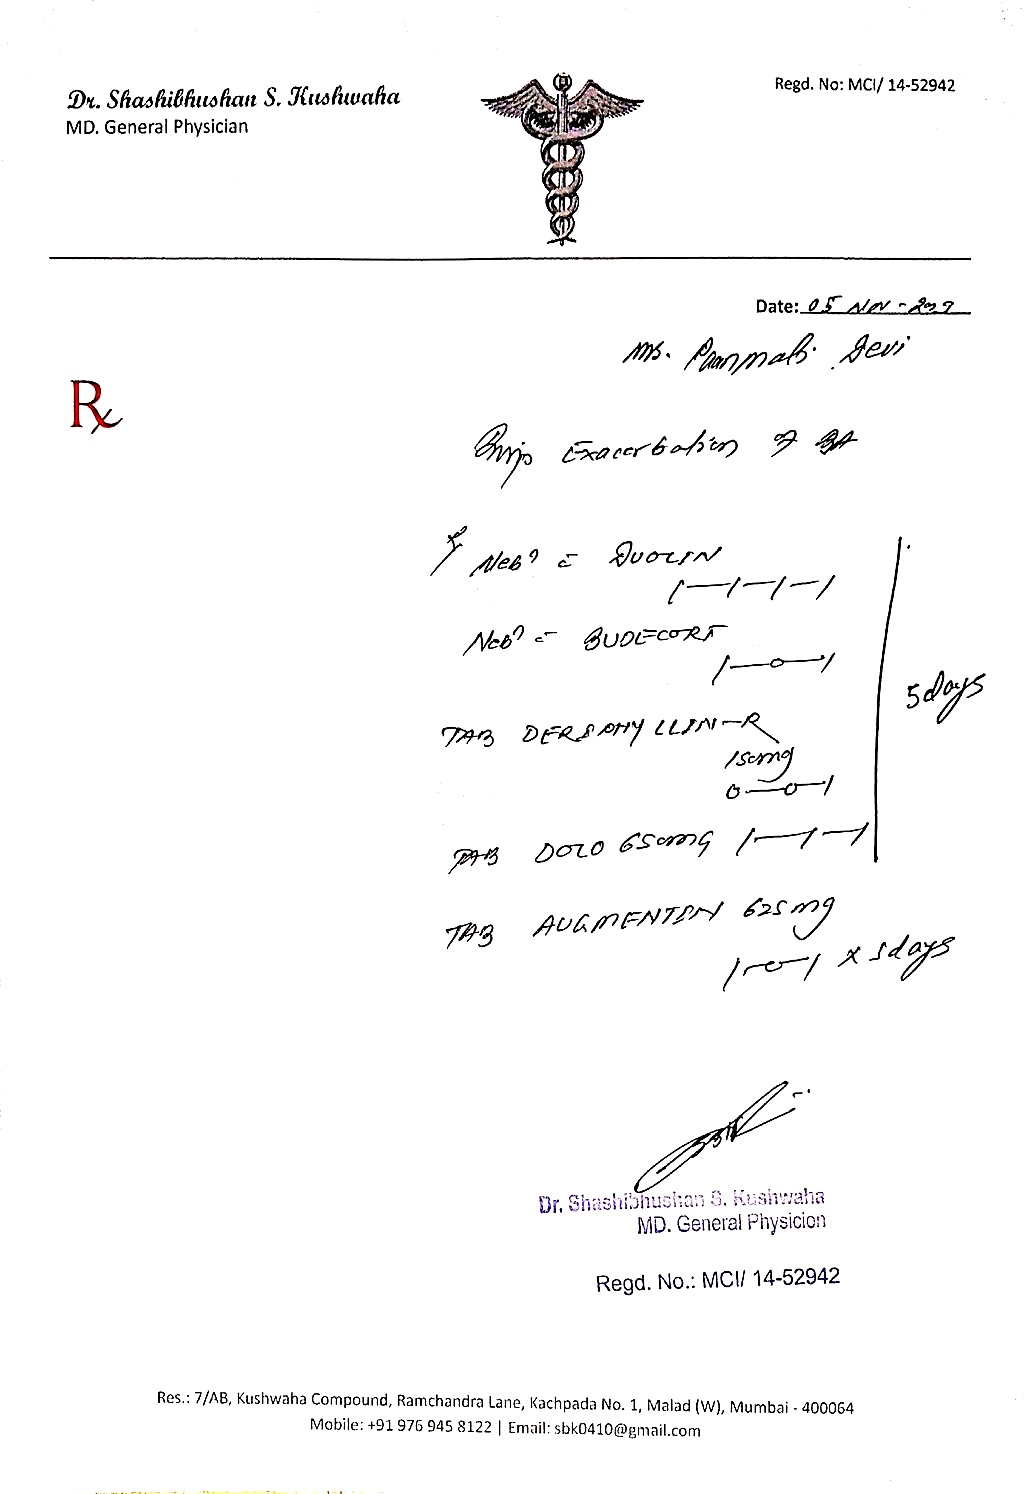 Dr. Shashibhushan S. Kushwaha
MD. General Physician
Regd. No: MCI/ 14-52942
Date: 05
Ms. Devi
Rx
Exacerbation of BA
Neb? c̄ DUOLIN
1—1—1—1
Neb? c̄ BUDECORT
1—0—1
TAB DERIPHYLLIN-R
150mg
0—0—1
TAB DOLO 650mg 1—1—1
5 days
TAB AUGMENTIN 625mg
1—0—1 x 5 days
Dr. Shashibhushan S. Kushwaha
MD. General Physicion
Regd. No.: MCI/ 14-52942
Res.: 7/AB, Kushwaha Compound, Ramchandra Lane, Kachpada No. 1, Malad (W), Mumbai - 400064
Mobile: +91 976 945 8122 | Email: sbk0410@gmail.com